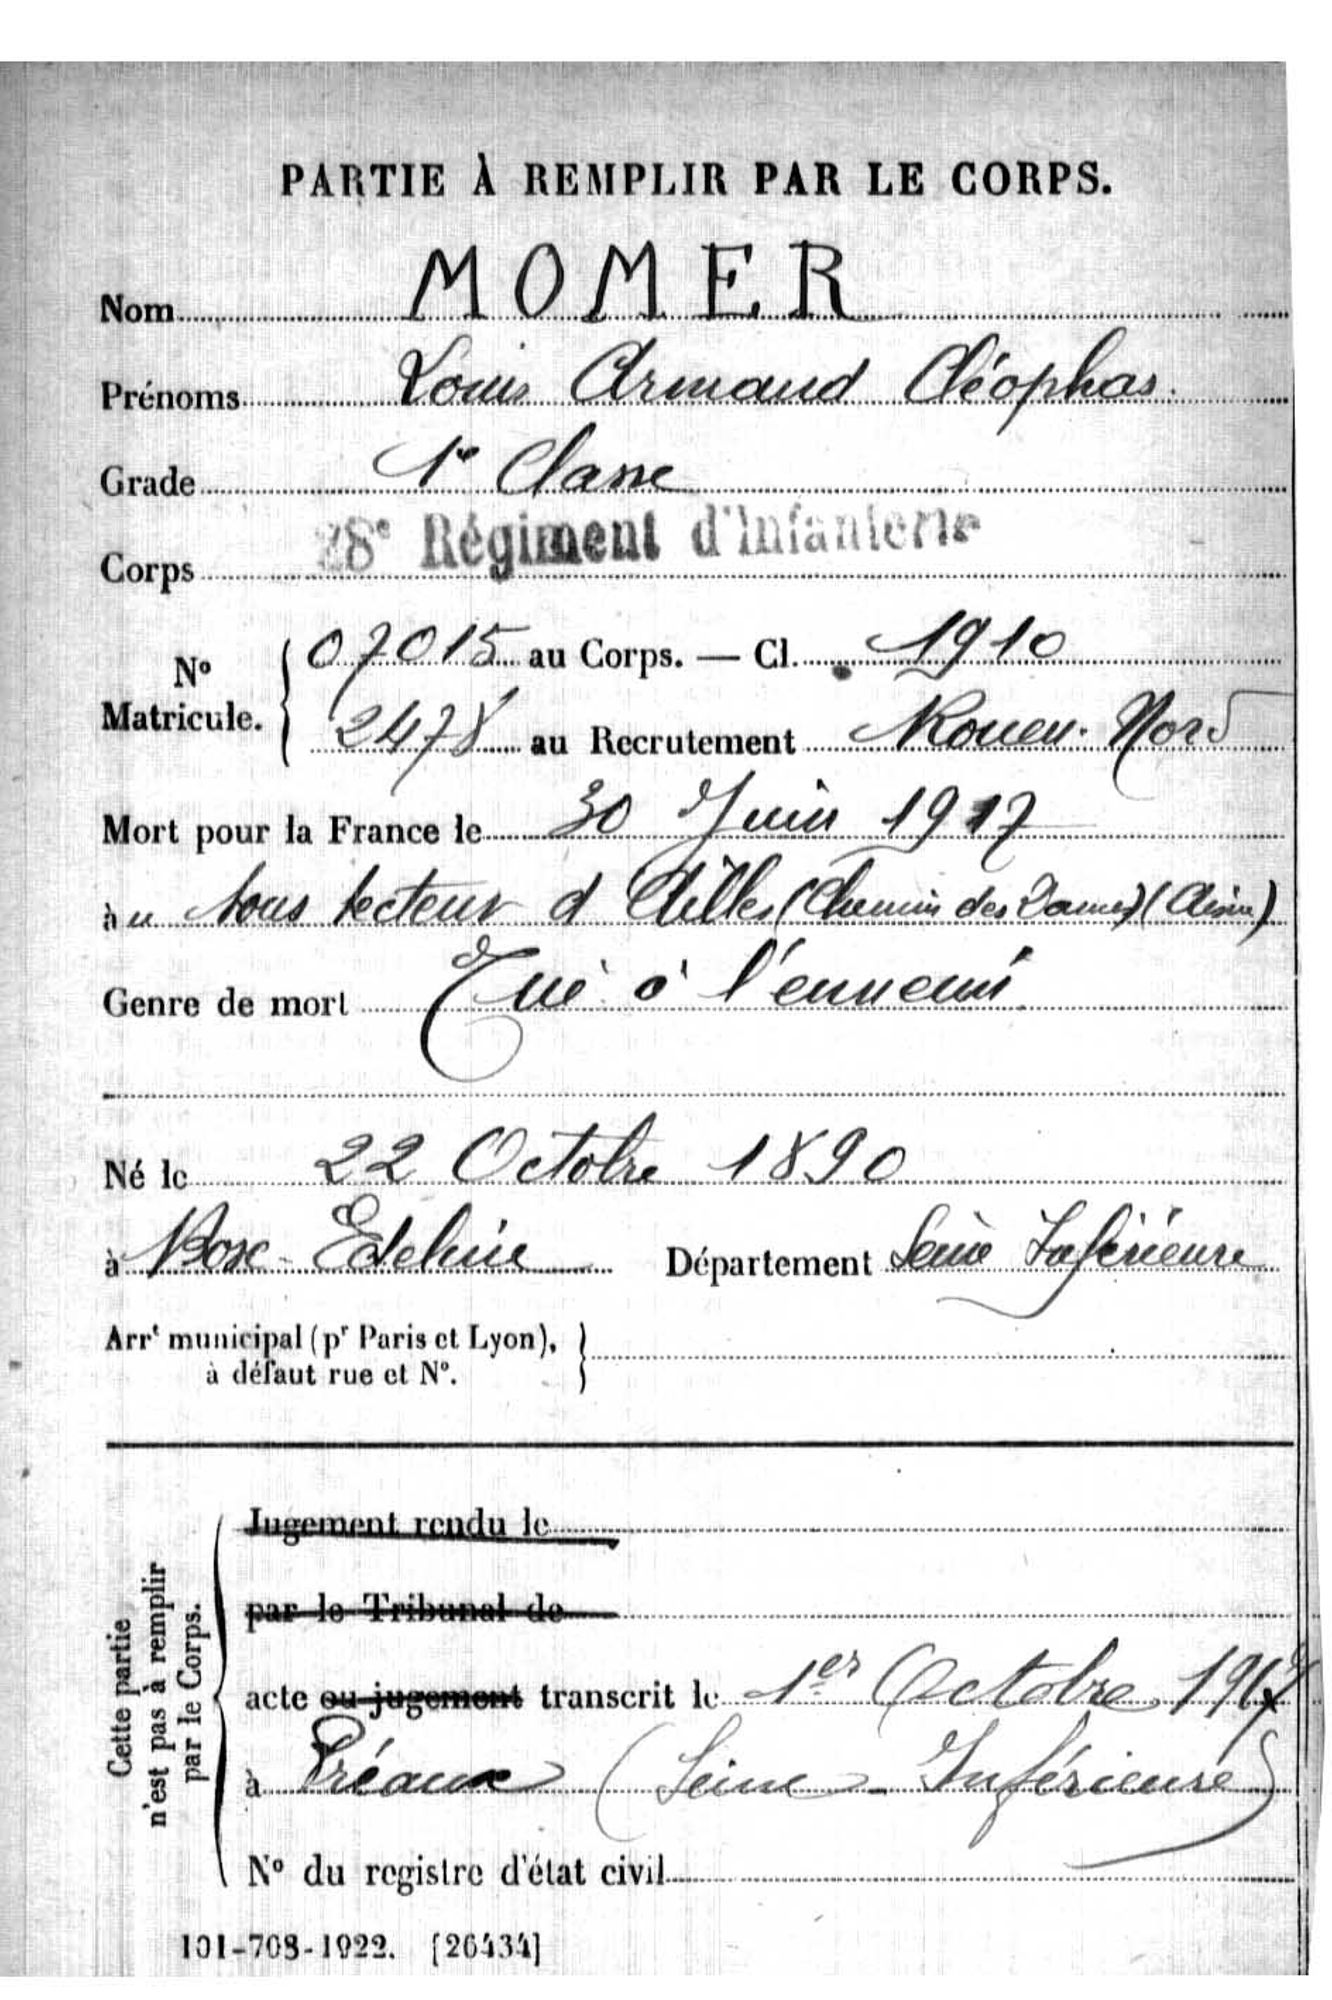 PARTIE À REMPLIR PAR LE CORPS.
Nom MOMER
Prénoms Louis Armand Cléophas.
Grade 1e Classe
Corps 28e Régiment d'Infanterie
No Matricule. { 07015 au Corps. — Cl. 1910
2478 au Recrutement Rouen. Nord
Mort pour la France le 30 Juin 1917
à u sous secteur d Ailles (Chemin des Dames) (Aisne)
Genre de mort Tué à l'ennemi
Né le 22 Octobre 1890
à Bosc-Edeline Département Seine Inférieure
Arrt municipal (pr Paris et Lyon), }
à défaut rue et No.
Cette partie n'est pas à remplir par le Corps.
Jugement rendu le
par le Tribunal de
acte ou jugement transcrit le 1er Octobre
à Préaux (Seine-Inférieure)
No du registre d'état civil
101-708-1922. [26434]